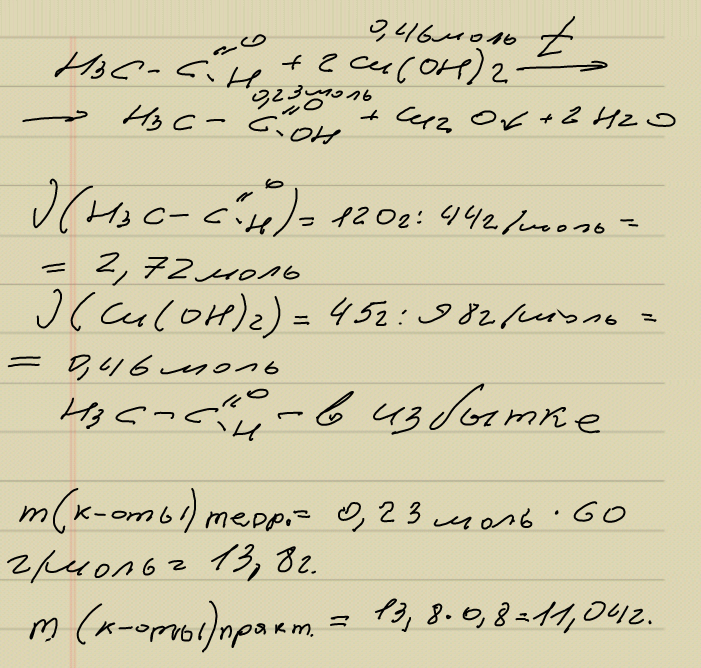 0,46 моль
H3C – C(=O)–H + 2 Cu(OH)2 t →
0,23 моль
→ H3C – C(=O)–OH + Cu2O↓ + 2 H2O
ν(H3C – C(=O)–H) = 120г : 44г/моль =
= 2,72 моль
ν(Cu(OH)2) = 45г : 98г/моль =
= 0,46 моль
H3C – C(=O)–H – в избытке
m(к-оты) теор. = 0,23 моль · 60
г/моль = 13,8г.
m(к-оты) практ. = 13,8·0,8=11,04г.